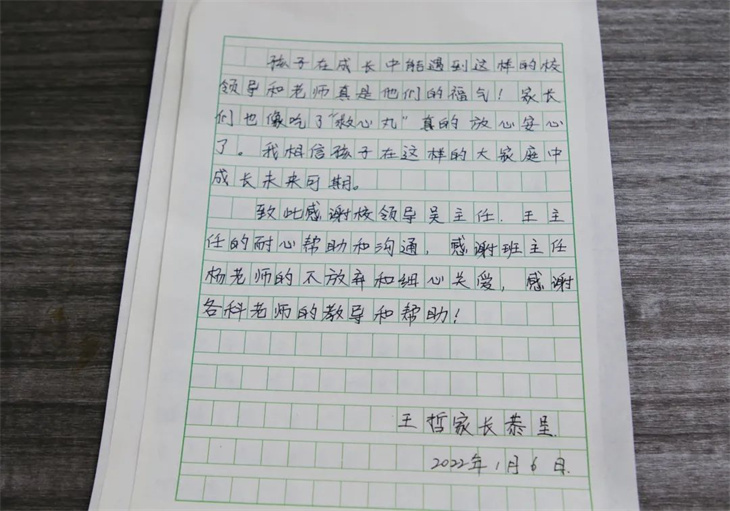 孩子在成长中能遇到这样的校
领导和老师真是他们的福气！家长
们也像吃了“救心丸”真的放心安心
了。我相信孩子在这样的大家庭中
成长未来可期。
致此感谢校领导吴主任.王主
任的耐心帮助和沟通，感谢班主任
杨老师的不放弃和细心关爱，感谢
各科老师的教导和帮助！
王哲家长恭呈
2022年1月6日.